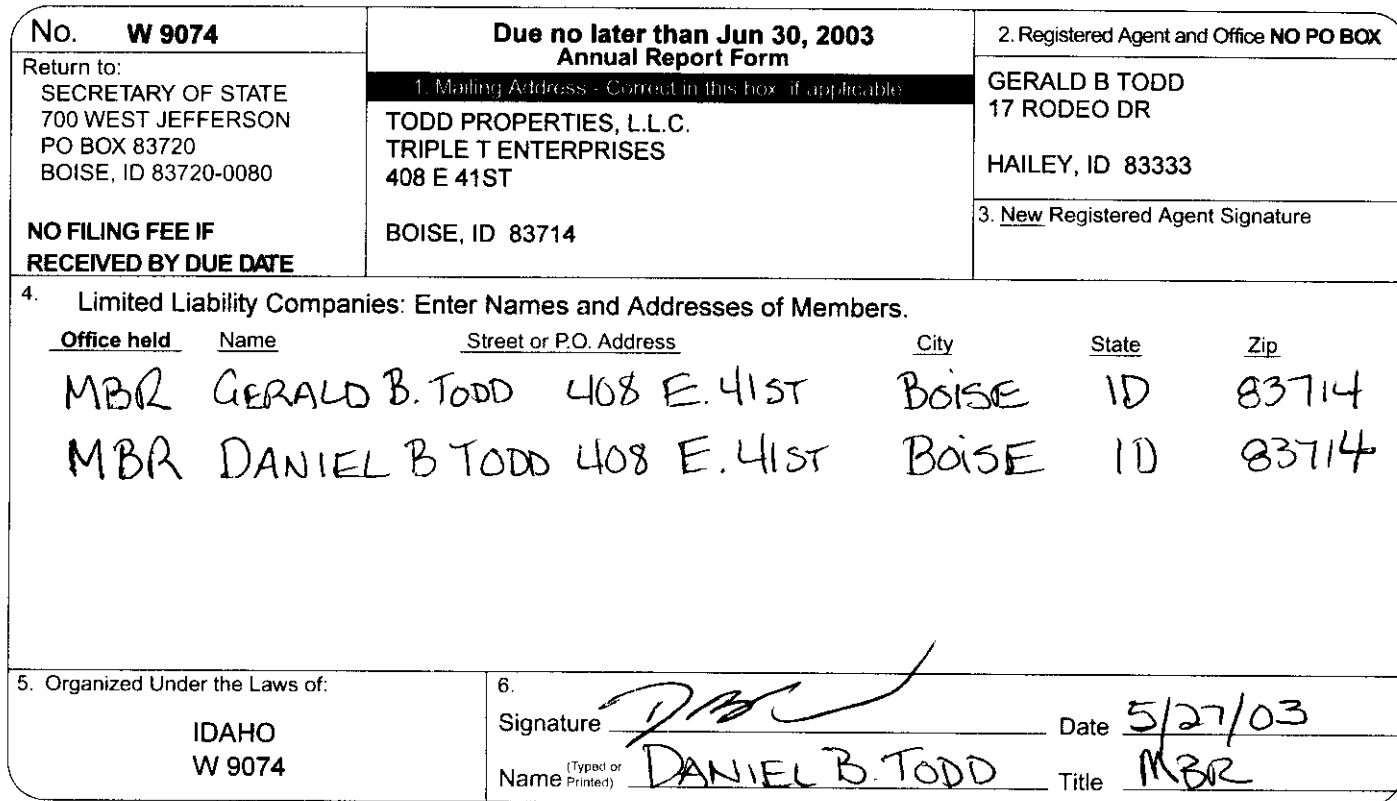 No. W 9074
Return to:
SECRETARY OF STATE
700 WEST JEFFERSON
PO BOX 83720
BOISE, ID 83720-0080
NO FILING FEE IF
RECEIVED BY DUE DATE
Due no later than Jun 30, 2003
Annual Report Form
1. Mailing Address - Correct in this box if applicable
TODD PROPERTIES, L.L.C.
TRIPLE T ENTERPRISES
408 E 41ST
BOISE, ID 83714
2. Registered Agent and Office NO PO BOX
GERALD B TODD
17 RODEO DR
HAILEY, ID 83333
3. New Registered Agent Signature
4. Limited Liability Companies: Enter Names and Addresses of Members.
Office held Name Street or P.O. Address City State Zip
MBR GERALD B. TODD 408 E. 41ST BOISE ID 83714
MBR DANIEL B TODD 408 E. 41ST BOISE ID 83714
5. Organized Under the Laws of:
IDAHO
W 9074
6.
Signature Date 5/27/03
Name (Typed or Printed) DANIEL B. TODD Title MBR